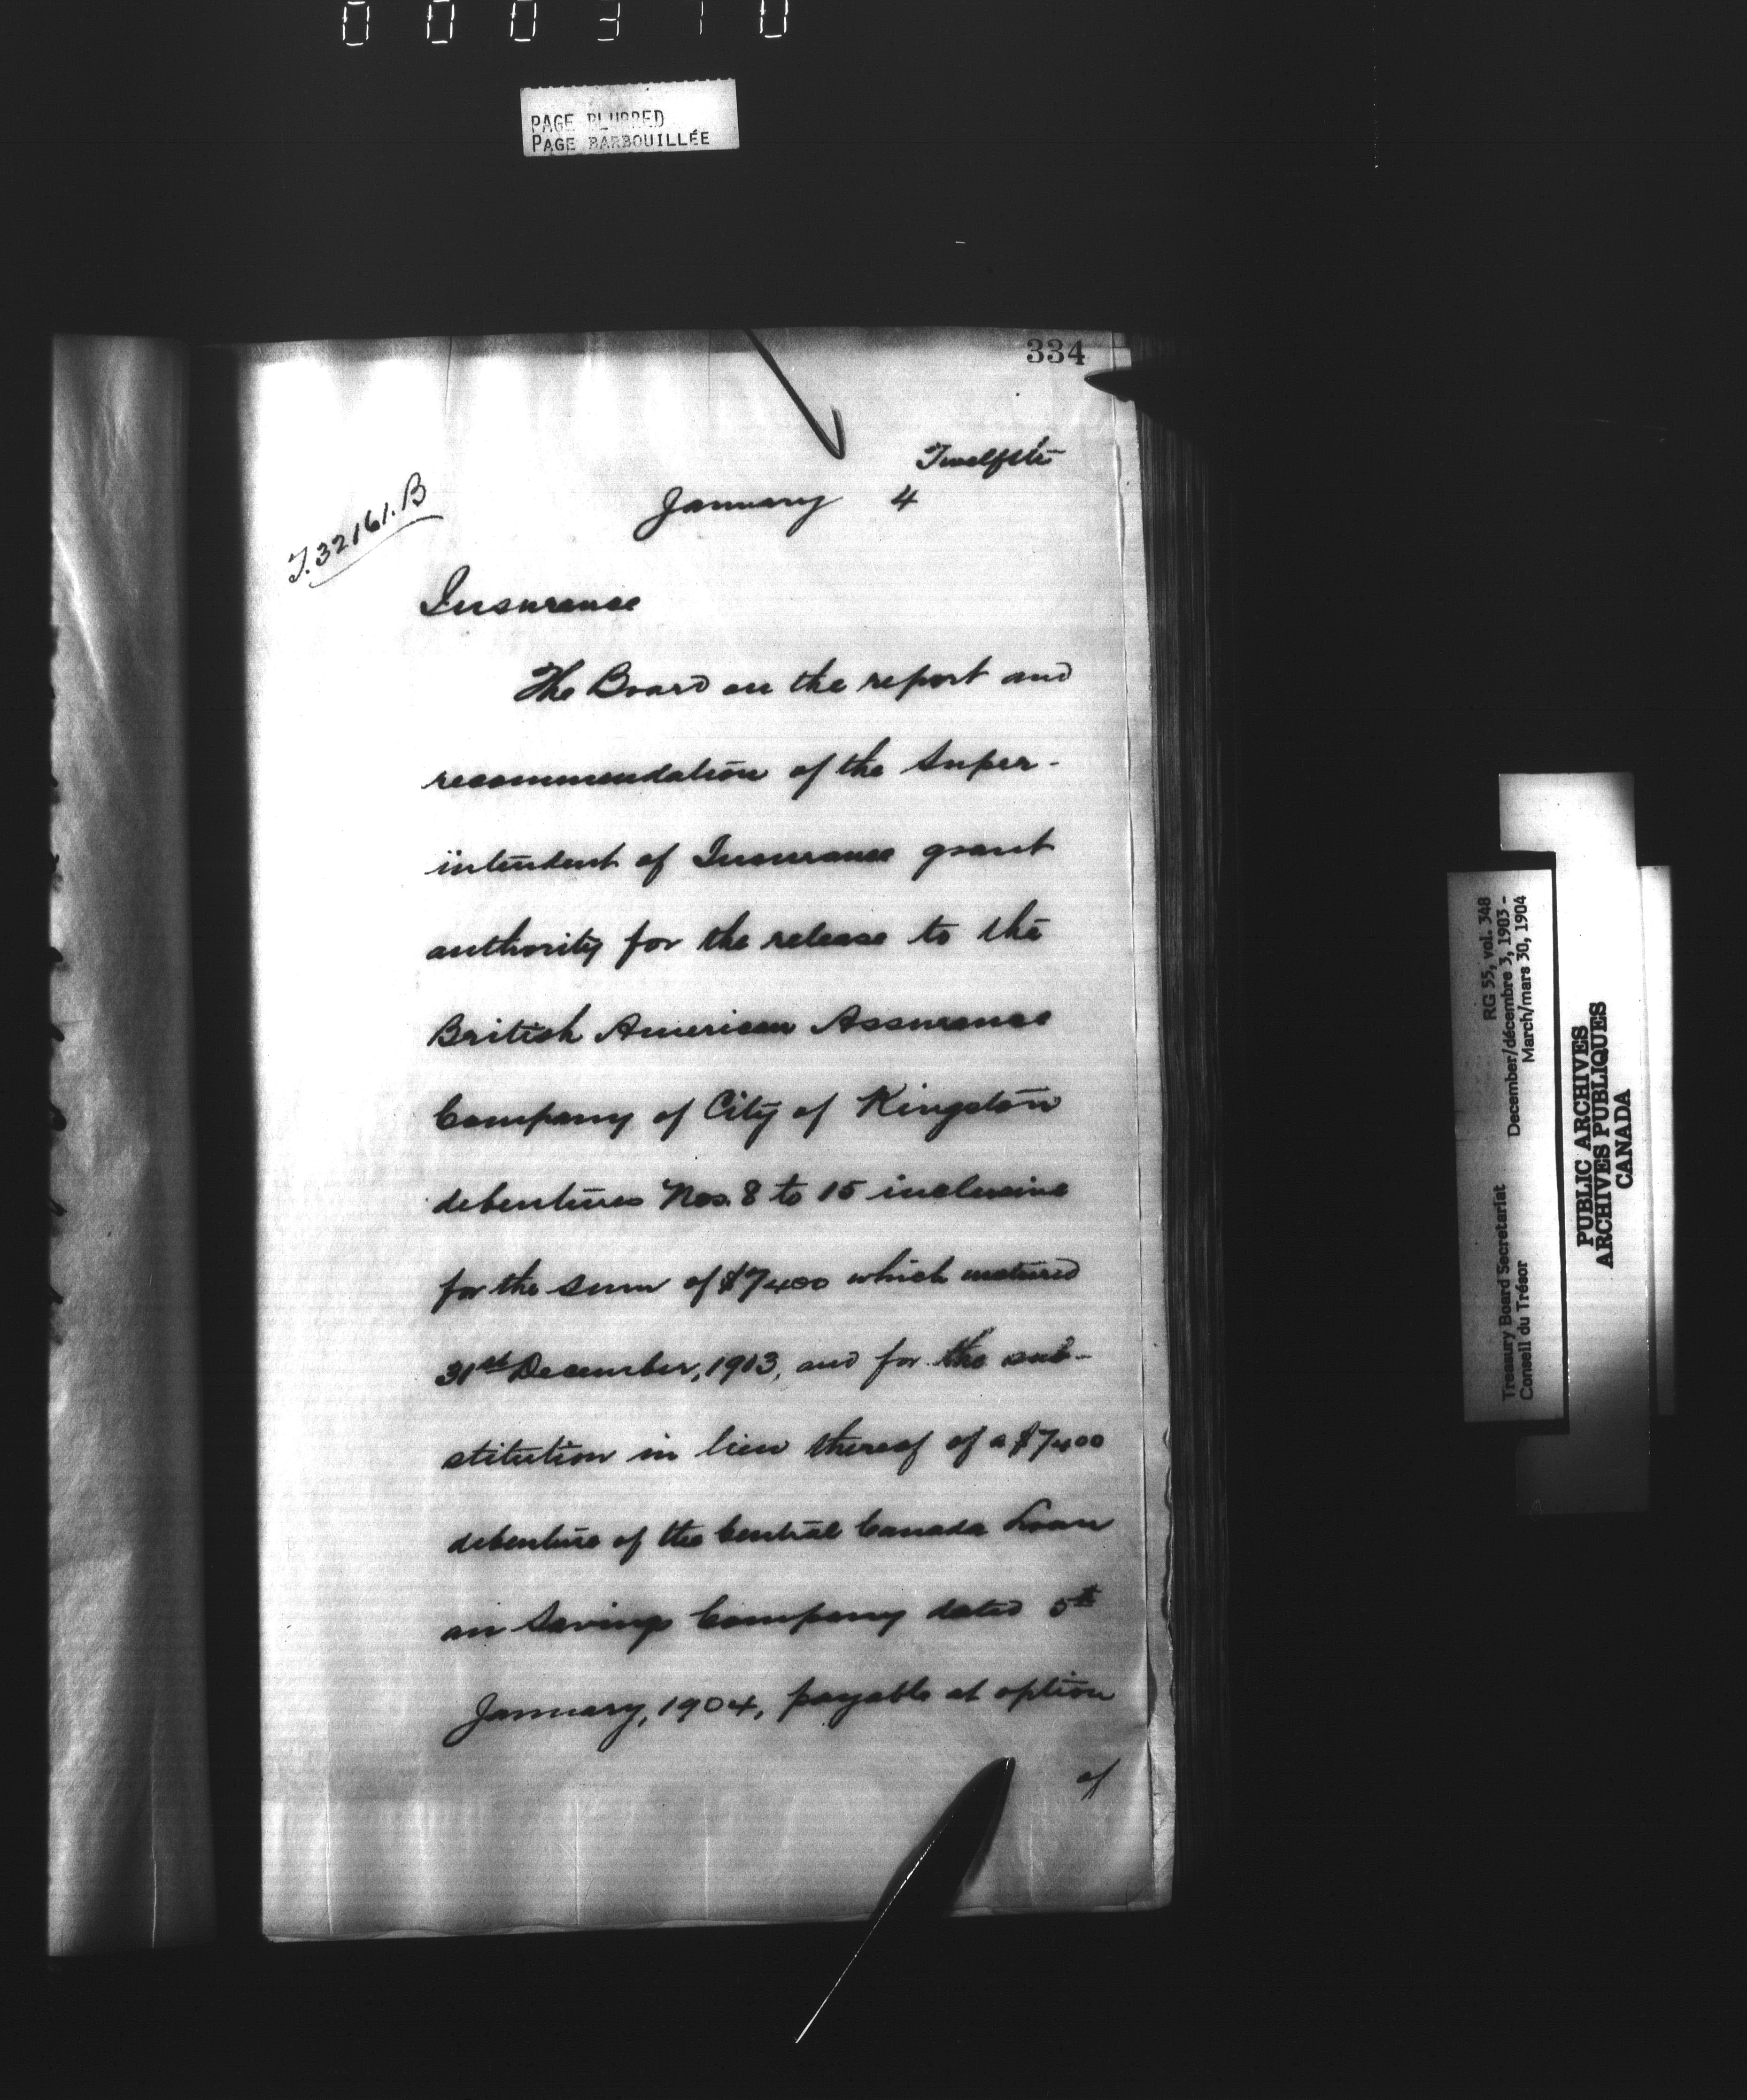 000310
PAGE BLURRED
PAGE BARBOUILLÉE
334
Twelfth
January 4
T.32161.B
Insurance
The Board on the report and
recommendation of the Super-
intendent of Insurance grant
authority for the release to the
British American Assurance
Company of City of Kingston
debentures Nos. 8 to 15 inclusive
for the sum of $7400 which matured
31st December, 1903, and for the sub-
stitution in lieu thereof of a $7400
debenture of the Central Canada Loan
an Savings Company dated 5th
January, 1904, payable at option
of
RG 55, vol. 348
Treasury Board Secretariat December/décembre 3, 1903 -
Conseil du Trésor March/mars 30, 1904
PUBLIC ARCHIVES
ARCHIVES PUBLIQUES
CANADA